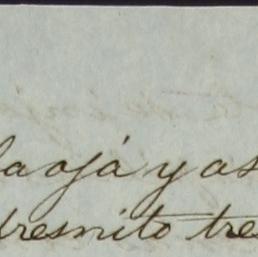 laojá y as
dresnito tre